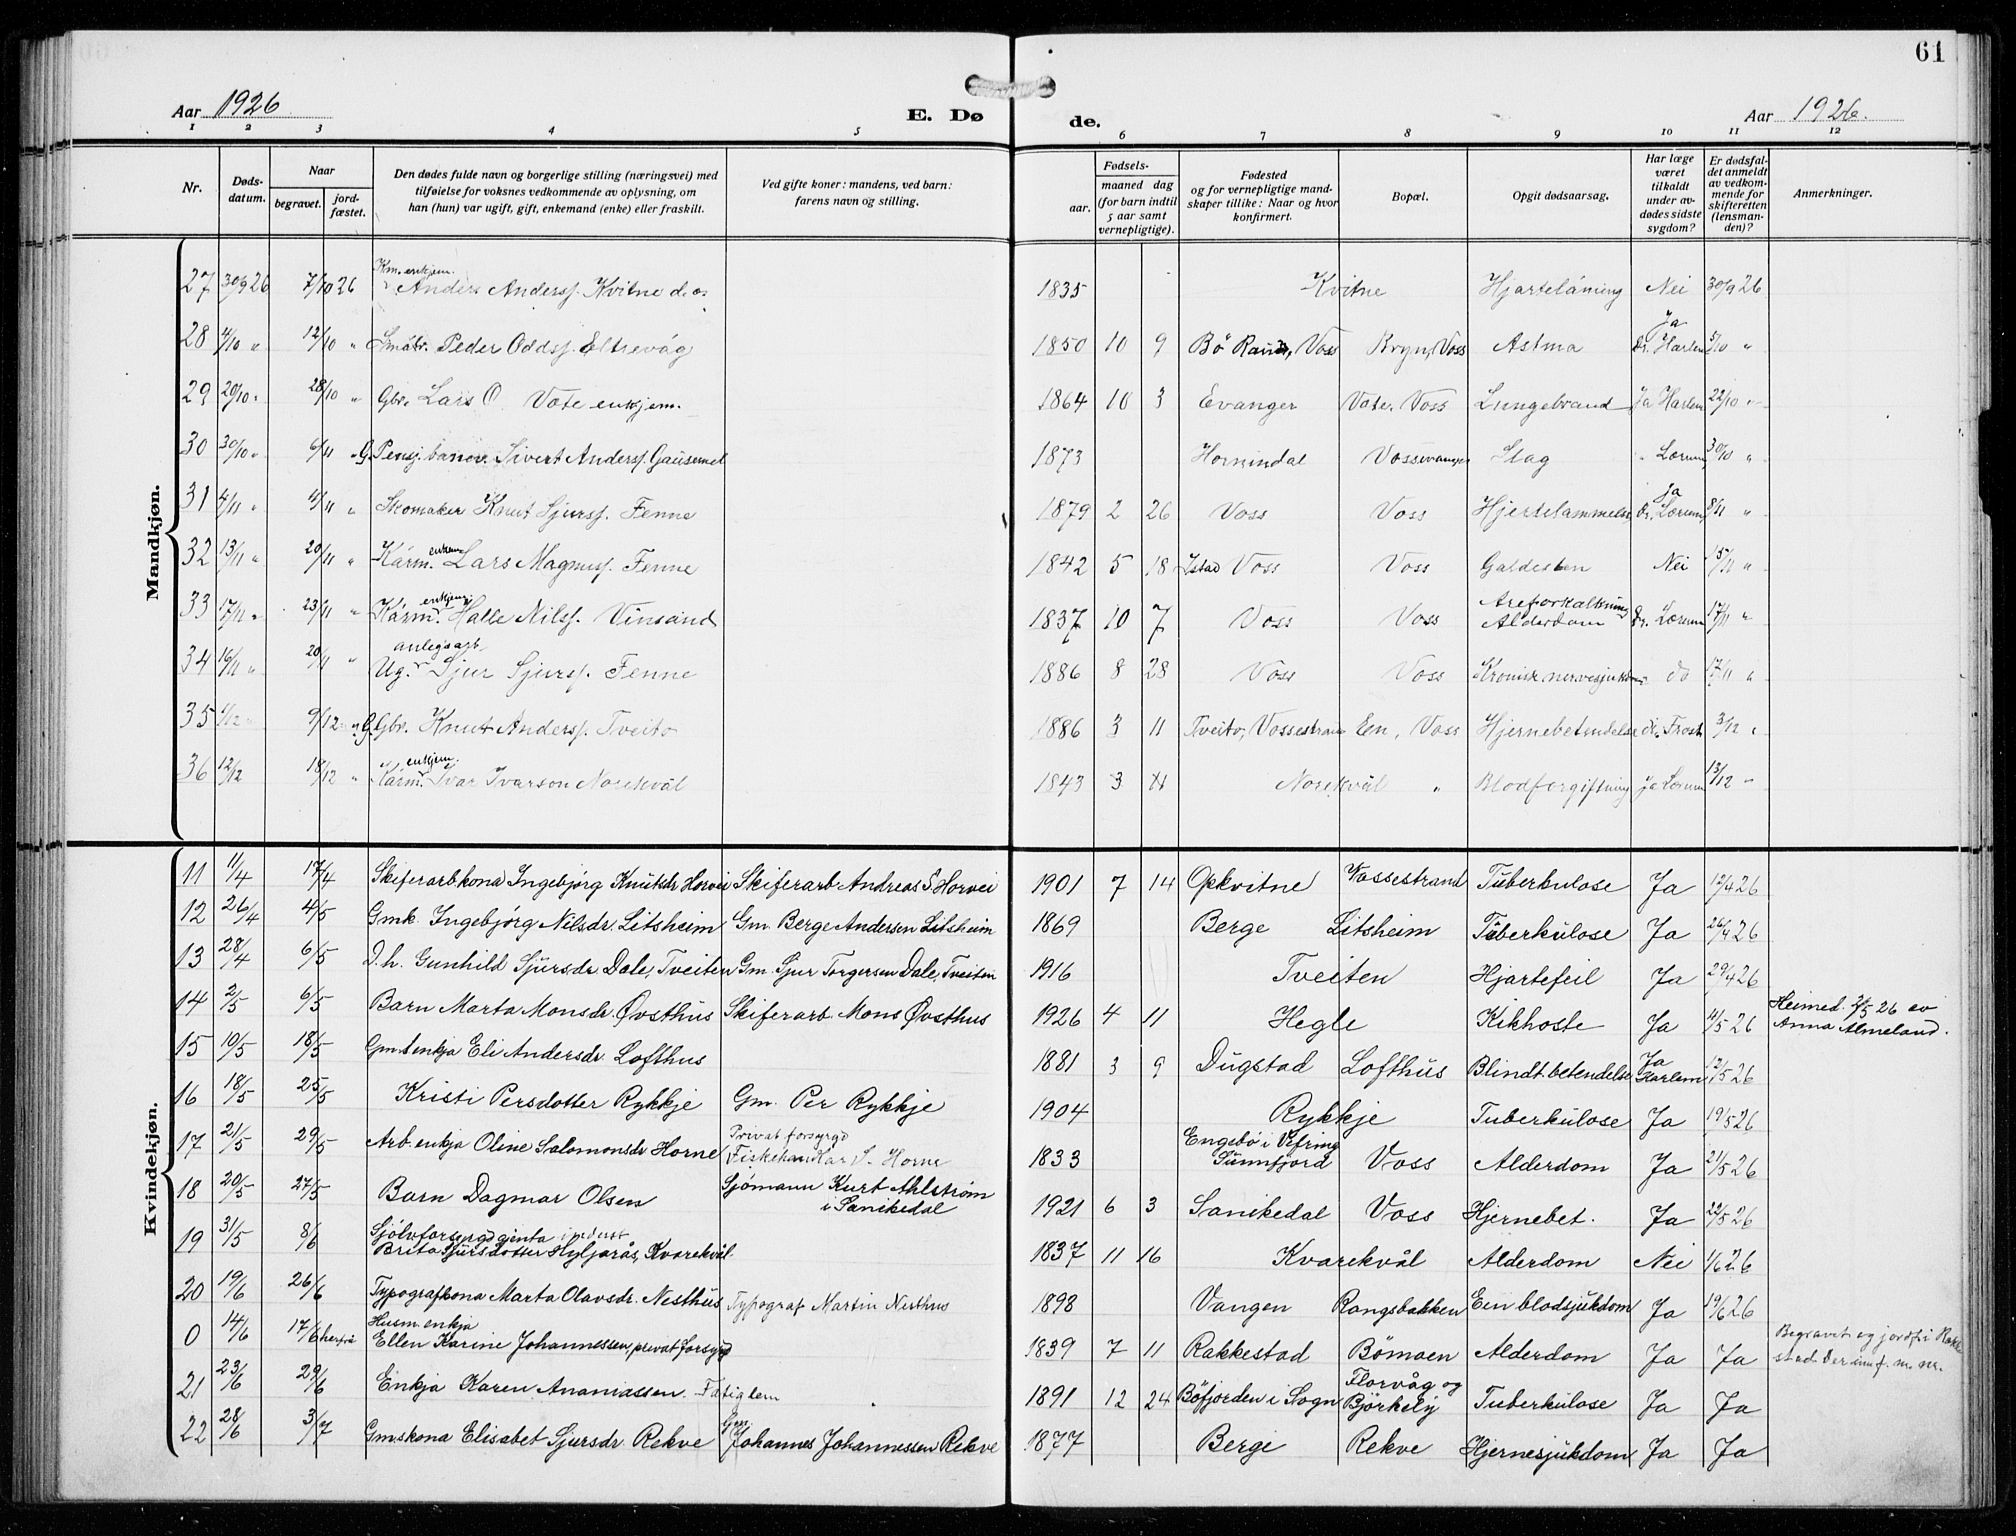 61
Aar 1926
E. Døde.
Aar 1926.
1 2 3 4 5 6 7 8 9 10 11 12
Nr.
Døds-datum.
Naar
begravet.
jord-fæstet.
Den dødes fulde navn og borgerlige stilling (næringsvei) med
tilføielse for voksnes vedkommende av oplysning, om
han (hun) var ugift, gift, enkemand (enke) eller fraskilt.
Ved gifte koner: mandens, ved barn:
farens navn og stilling.
Fødsels-
aar.
maaned dag
(for barn indtil
5 aar samt
vernepligtige).
Fødested
og for vernepligtige mand-
skaper tillike: Naar og hvor
konfirmert.
Bopæl.
Opgit dødsaarsag.
Har læge
været
tilkaldt
under av-
dødes sidste
sygdom?
Er dødsfal-
det anmeldt
av vedkom-
mende for
skifteretten
(lensman-
den)?
Anmerkninger.
Mandkjøn.
27 30/9 26 7/10 26 Km. enkjem. Anders Anderss. Kvitne d.o. 1835 Kvitne Hjartelåming Nei 30/9 26
28 4/10 " 12/10 " Småbr. Peder Oddsj. Eltrevåg 1850 10 9 Bö Raund, Voss Bryn, Voss Astma Ja Dr. Harlem 5/10 "
29 20/10 " 28/10 " Gbr. Lars O. Vöte enkjem. 1864 10 3 Evanger Vöte, Voss Lungebrand Ja Harlem 22/10 "
30 30/10 " 6/11 " G. Pensj. banev. Sivert Anderss. Gausemel 1873 Hornindal Vossevangen Slag " Lærum 30/10 "
31 4/11 " 11/11 " Skomaker Knut Sjurss. Fenne 1879 2 26 Voss Voss Hjertelammelse Ja Dr. Lærum 8/11 "
32 13/11 " 20/11 " Kårm. enkem. Lars Magnuss. Fenne 1842 5 18 Istad Voss Voss Galdesten Nei 15/11 "
33 17/11 " 23/11 " Kårm. enkjem. Halle Nilss. Vinsand 1837 10 7 Voss Voss Areforkalkning Alderdom Dr. Lærum 17/11 "
34 16/11 " 20/11 " Ug. anlegsarb. Sjur Sjurss. Fenne 1886 8 28 Voss Voss Kronisk nervesjukdom do 17/11 "
35 1/12 " 9/12 " G. Gbr. Knut Anderss. Tveito 1886 3 11 Tveito, Vossestrand Een, Voss Hjernebetendelse dr. Frost 3/12 "
36 12/12 18/12 " Kårm. enkjem. Ivar Ivarson Norekvål 1843 3 Norekvål " Blodforgiftning Ja Lærum 13/12 "
Kvindekjøn.
11 11/4 17/4 Skiferarbkona Ingebjörg Knutsdr Horvei Skiferarb Andreas S. Horvei 1901 7 14 Opkvitne Vossestrand Tuberkulose Ja 12/4 26
12 26/4 4/5 Gmk. Ingebjörg Nilsdr. Litsheim Gm. Berge Andersen Litsheim 1869 Berge Litsheim Tuberkulose Ja 26/4 26
13 28/4 6/5 D.h. Gunhild Sjursdr Dale, Tveiten Gm. Sjur Torgersen Dale, Tveiten 1916 Tveiten Hjartefeil Ja 29/4 26
14 2/5 6/5 Barn Marta Monsdr. Øvsthus Skiferarb. Mons Øvsthus 1926 4 11 Hegle Kikhoste Ja 4/5 26 Heimed. 2/5 26 av Anna Almeland.
15 10/5 18/5 Gmsenkja Eli Andersdr. Lofthus 1881 3 9 Dugstad Lofthus Blindt.betendelse Ja Harlem 12/5 26
16 18/5 25/5 Kristi Persdotter Rykkje Gm. Per Rykkje 1904 Rykkje Tuberkulose Ja 19/5 26
17 21/5 29/5 Arb.enkja Oline Salomonsdr Horne Privat forsyrgd Fiskehandlar S. Horne 1833 Engebö i Vefring Sunnfjord Voss Alderdom Ja 21/5 26
18 20/5 27/5 Barn Dagmar Olsen Sjömann Kurt Ahlström i Sanikedal 1921 6 3 Sanikedal Voss Hjernebet. Ja 22/5 26
19 31/5 8/6 Sjölvforsyrgd gjenta inderst Brita Sjursdotter Hyljarås, Kvarekvål 1837 11 16 Kvarekvål Alderdom Nei 1/6 26
20 19/6 26/6 Typografkona Marta Olavsdr. Nesthus Typograf Martin Nesthus 1898 Vangen Rongsbakken Ein blodsjukdom Ja 19/6 26
0 14/6 17/6 herfrå Husm.enkja Ellen Karine Johannessen, privat forsyrgd 1839 7 11 Rakkestad Bömoen Alderdom Ja Ja Begravet og jordf. i Rakkestad. Der innf. m. nr.
21 23/6 29/6 Enkja Karen Ananiassen. Fatiglem 1891 12 24 Böfjorden i Sogn Florvåg og Björkely Tuberkulose Ja Ja
22 28/6 3/7 Gmskona Elisabet Sjursdr. Rekve Gm. Johannes Johannessen Rekve 1877 Berge Rekve Hjernesjukdom Ja Ja